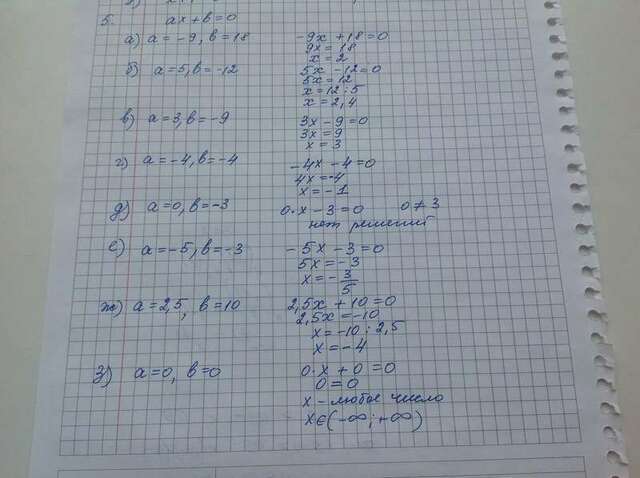 5. ax + в = 0
а) a = -9, в = 18 -9x + 18 = 0
9x = 18
x = 2
б) a = 5, в = -12 5x - 12 = 0
5x = 12
x = 12 : 5
x = 2,4
в) a = 3, в = -9 3x - 9 = 0
3x = 9
x = 3
г) a = -4, в = -4 -4x - 4 = 0
4x = -4
x = -1
д) a = 0, в = -3 0·x - 3 = 0 0 ≠ 3
нет решений
е) a = -5, в = -3 -5x - 3 = 0
5x = -3
x = -3/5
ж) a = 2,5, в = 10 2,5x + 10 = 0
2,5x = -10
x = -10 : 2,5
x = -4
з) a = 0, в = 0 0·x + 0 = 0
0 = 0
x - любое число
x ∈ (-∞; +∞)